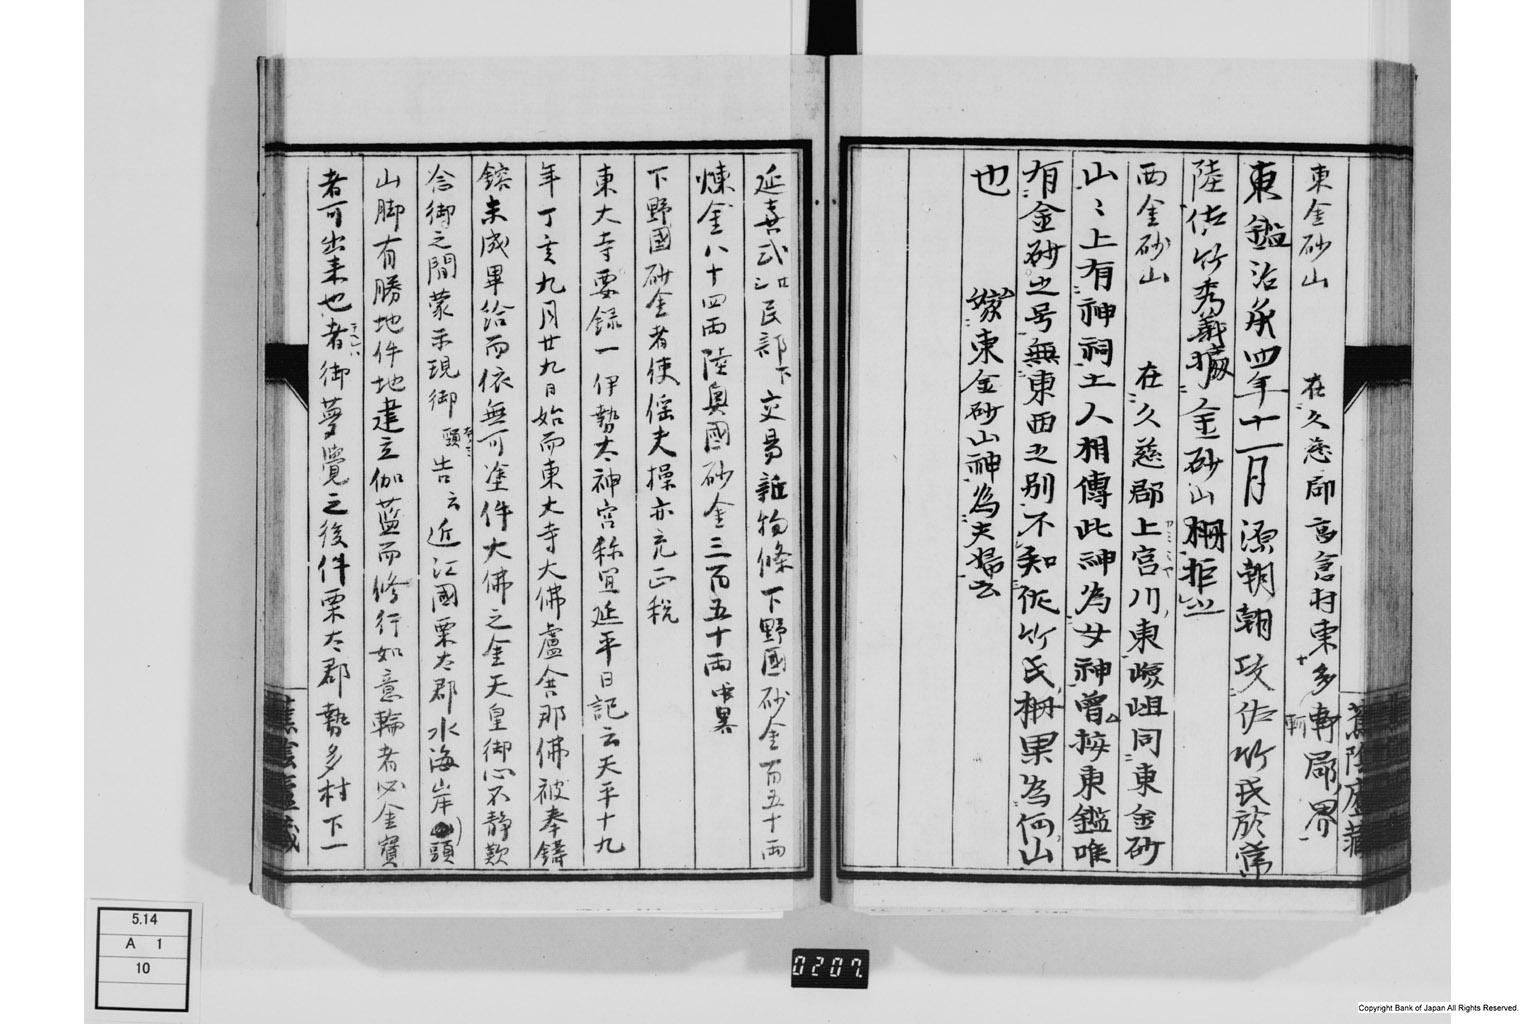 東金砂山 在久慈郡高倉村東多軻郡界
東鑑治承四年十一月源頼朝攻佐竹氏於常
陸佐竹秀義據金砂山柵拒之
西金砂山 在久慈郡上宮川東巖岨同東金砂
山々上有神祠土人相傳此神為女神曽按東鑑唯
有金砂之号無東西之別不知佐竹氏柵果為何山
也
嫁東金砂山神為夫婦云
延喜式 民部下 交易雜物條下野國砂金百五十両
煉金八十四両陸奥國砂金三百五十両 略
下野國砂金者使徭夫採亦充正税
東大寺要録一伊勢太神宮祢宜延平日記云天平十九
年丁亥九月廿九日始而東大寺大佛盧舍那佛被奉鋳
鎔未成畢給而依無可塗件大佛之金天皇御心不静歎
念御之間蒙示現御 告云近江國栗太郡水海岸頭
山脚有勝地件地建立伽藍而修行如意輪者必金寳
者可出来也者御夢覺之後件栗太郡勢多村下一
蕉陰廬蔵
5.14
A 1
10
0207.
Copyright Bank of Japan All Rights Reserved.